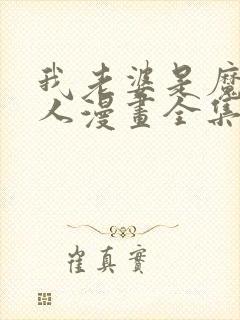 我老婆是魔
人漫畫全集
崔真實